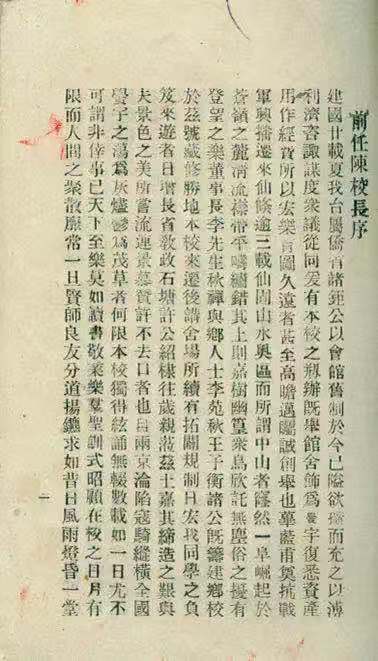 前任陳校長序
建國廿載夏我台屬僑省諸鉅公以會館舊制於今已隘欲擴而充之以溥
利濟咨諏謀度衆議從同爰有本校之剏辦旣舉館舍飾爲黌宇復悉資產
用作經費所以宏樂育圖久遠者甚至高瞻邁矚誠創舉也草藍甫奠抗戰
軍興播遷來仙倏逾三載仙固山水奧區而所謂中山者窿然一阜崛起於
蒼嶺之麓淸流襟帶平疇繡錯其上則嘉樹幽篁衆鳥欣託無塵俗之擾有
登望之樂董事長李先生秋禪與鄉人士李苑秋王子衡諸公旣籌建鄉校
於茲號藏修勝地本校來遷後講舍場所續有拓闢規制日宏我同學之負
笈來遊者日增長省敎政石塘許公紹棣往歲親蒞茲士嘉其締造之艱與
夫景色之美所嘗流連景慕贊許不去口者也自兩京淪陷寇騎縱橫全國
黌字之蕩爲灰燼鬱爲茂草者何限本校獨得絃誦無輟數載如一日尤不
可謂非倖事已天下至樂莫如讀書敬業樂羣聖訓式昭顧在校之日月有
限而人間之聚散靡常一旦賢師良友分道揚鑣求如昔日風雨燈昏一堂
一